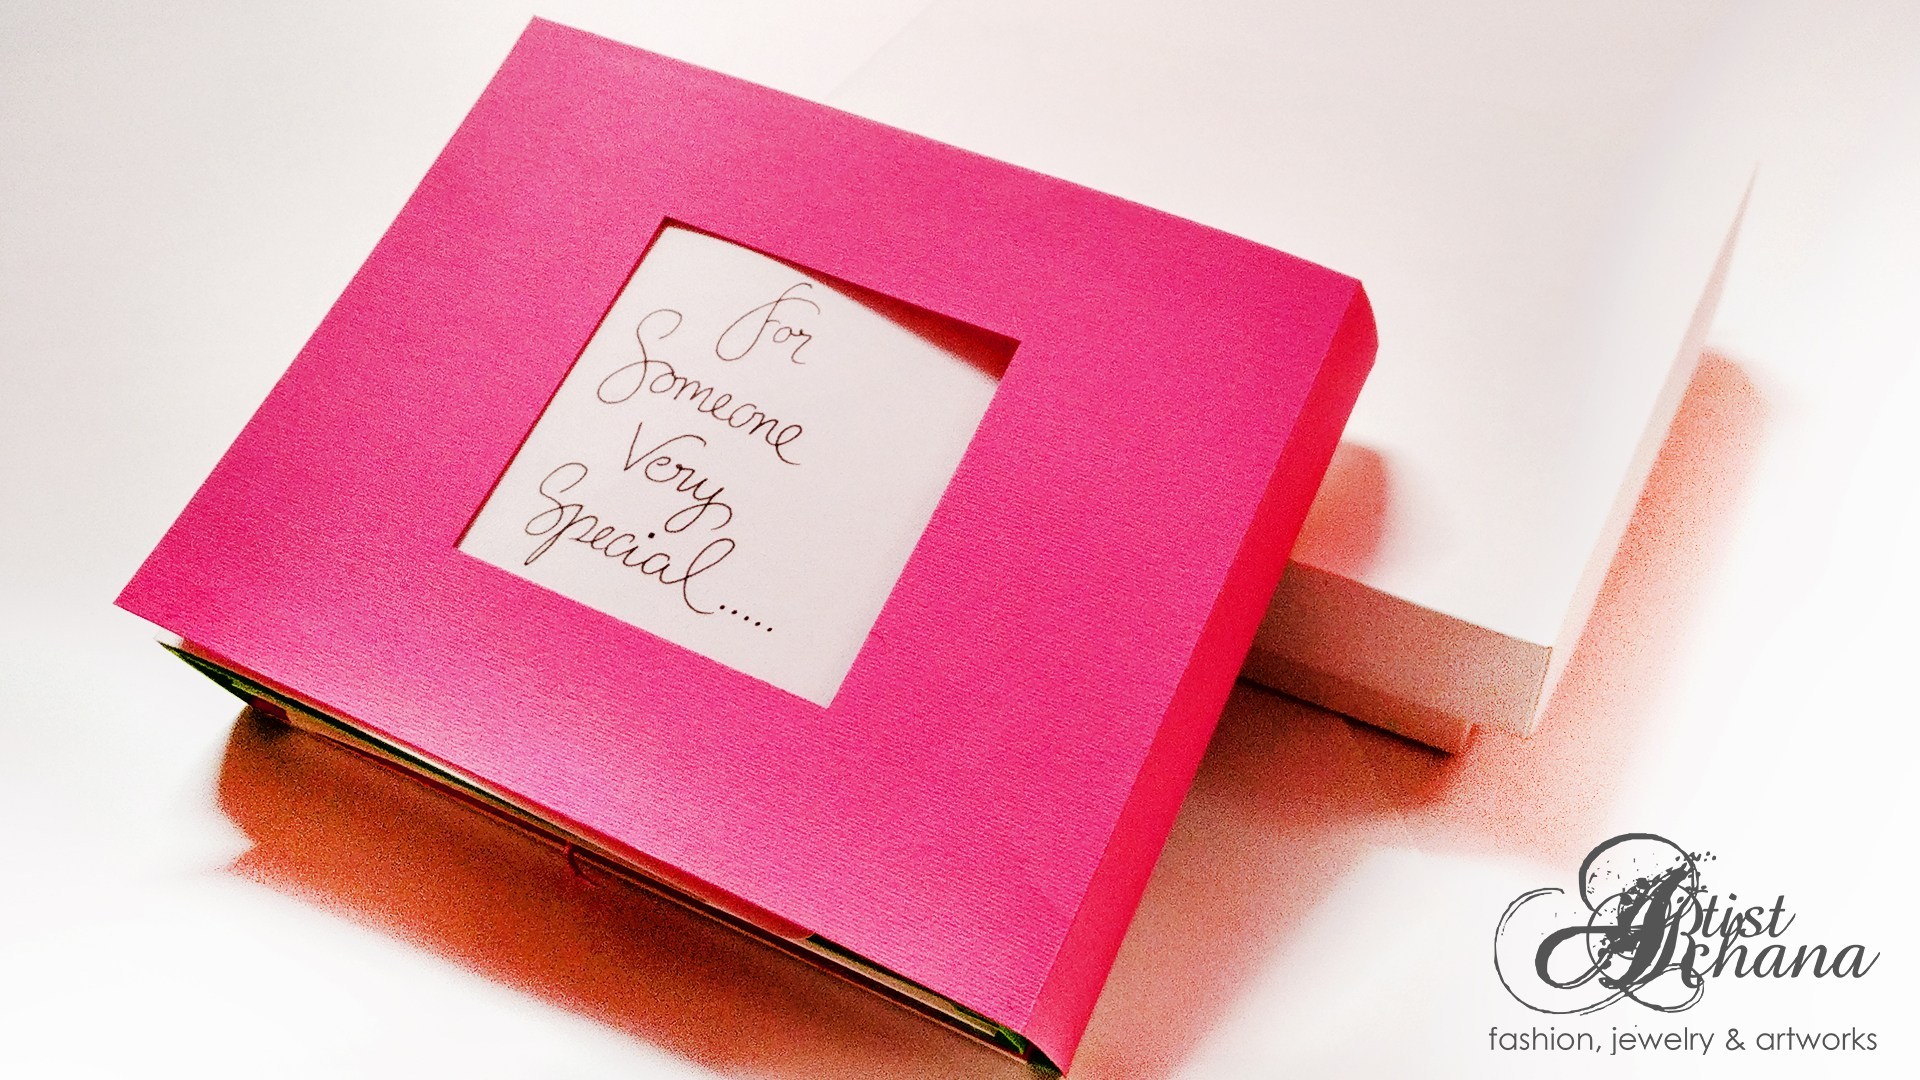 For
Someone
Very
Special.....
Artist
Archana
fashion, jewelry & artworks